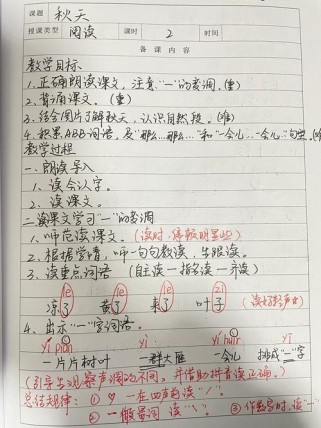 课题 秋天
授课类型 阅读 课时 2 时间
备课内容
教学目标
1.正确朗读课文,注意"一"的变调。(重)
2.背诵课文。(重)
3.结合图片了解秋天,认识自然段。(难)
4.积累ABB词语,及"那么…那么…"和"一会儿…一会儿…"句型。(难)
教学过程
一、朗读导入
1、读会认字。
2、读课文。
二、读课文学习"一"的变调
1、师范读课文。(读时,停顿明显些)
2、根据学情,师一句句教读,生跟读。
3、读重点词语 (自主读—指名读—齐读)
le le le zi
凉了 黄了 来了 叶子 (读好轻声中)
4、出示"一"字词语。
yí piàn yì: yí huìr yī
一片片树叶 一群大雁 一会儿 排成"一"字
(引导生观察声调的不同,并借助拼音读正确。)
总结规律:① 一在四声前读"ˊ"。
② 一般要词 读"ˋ"。 ③作数字时,读"一"